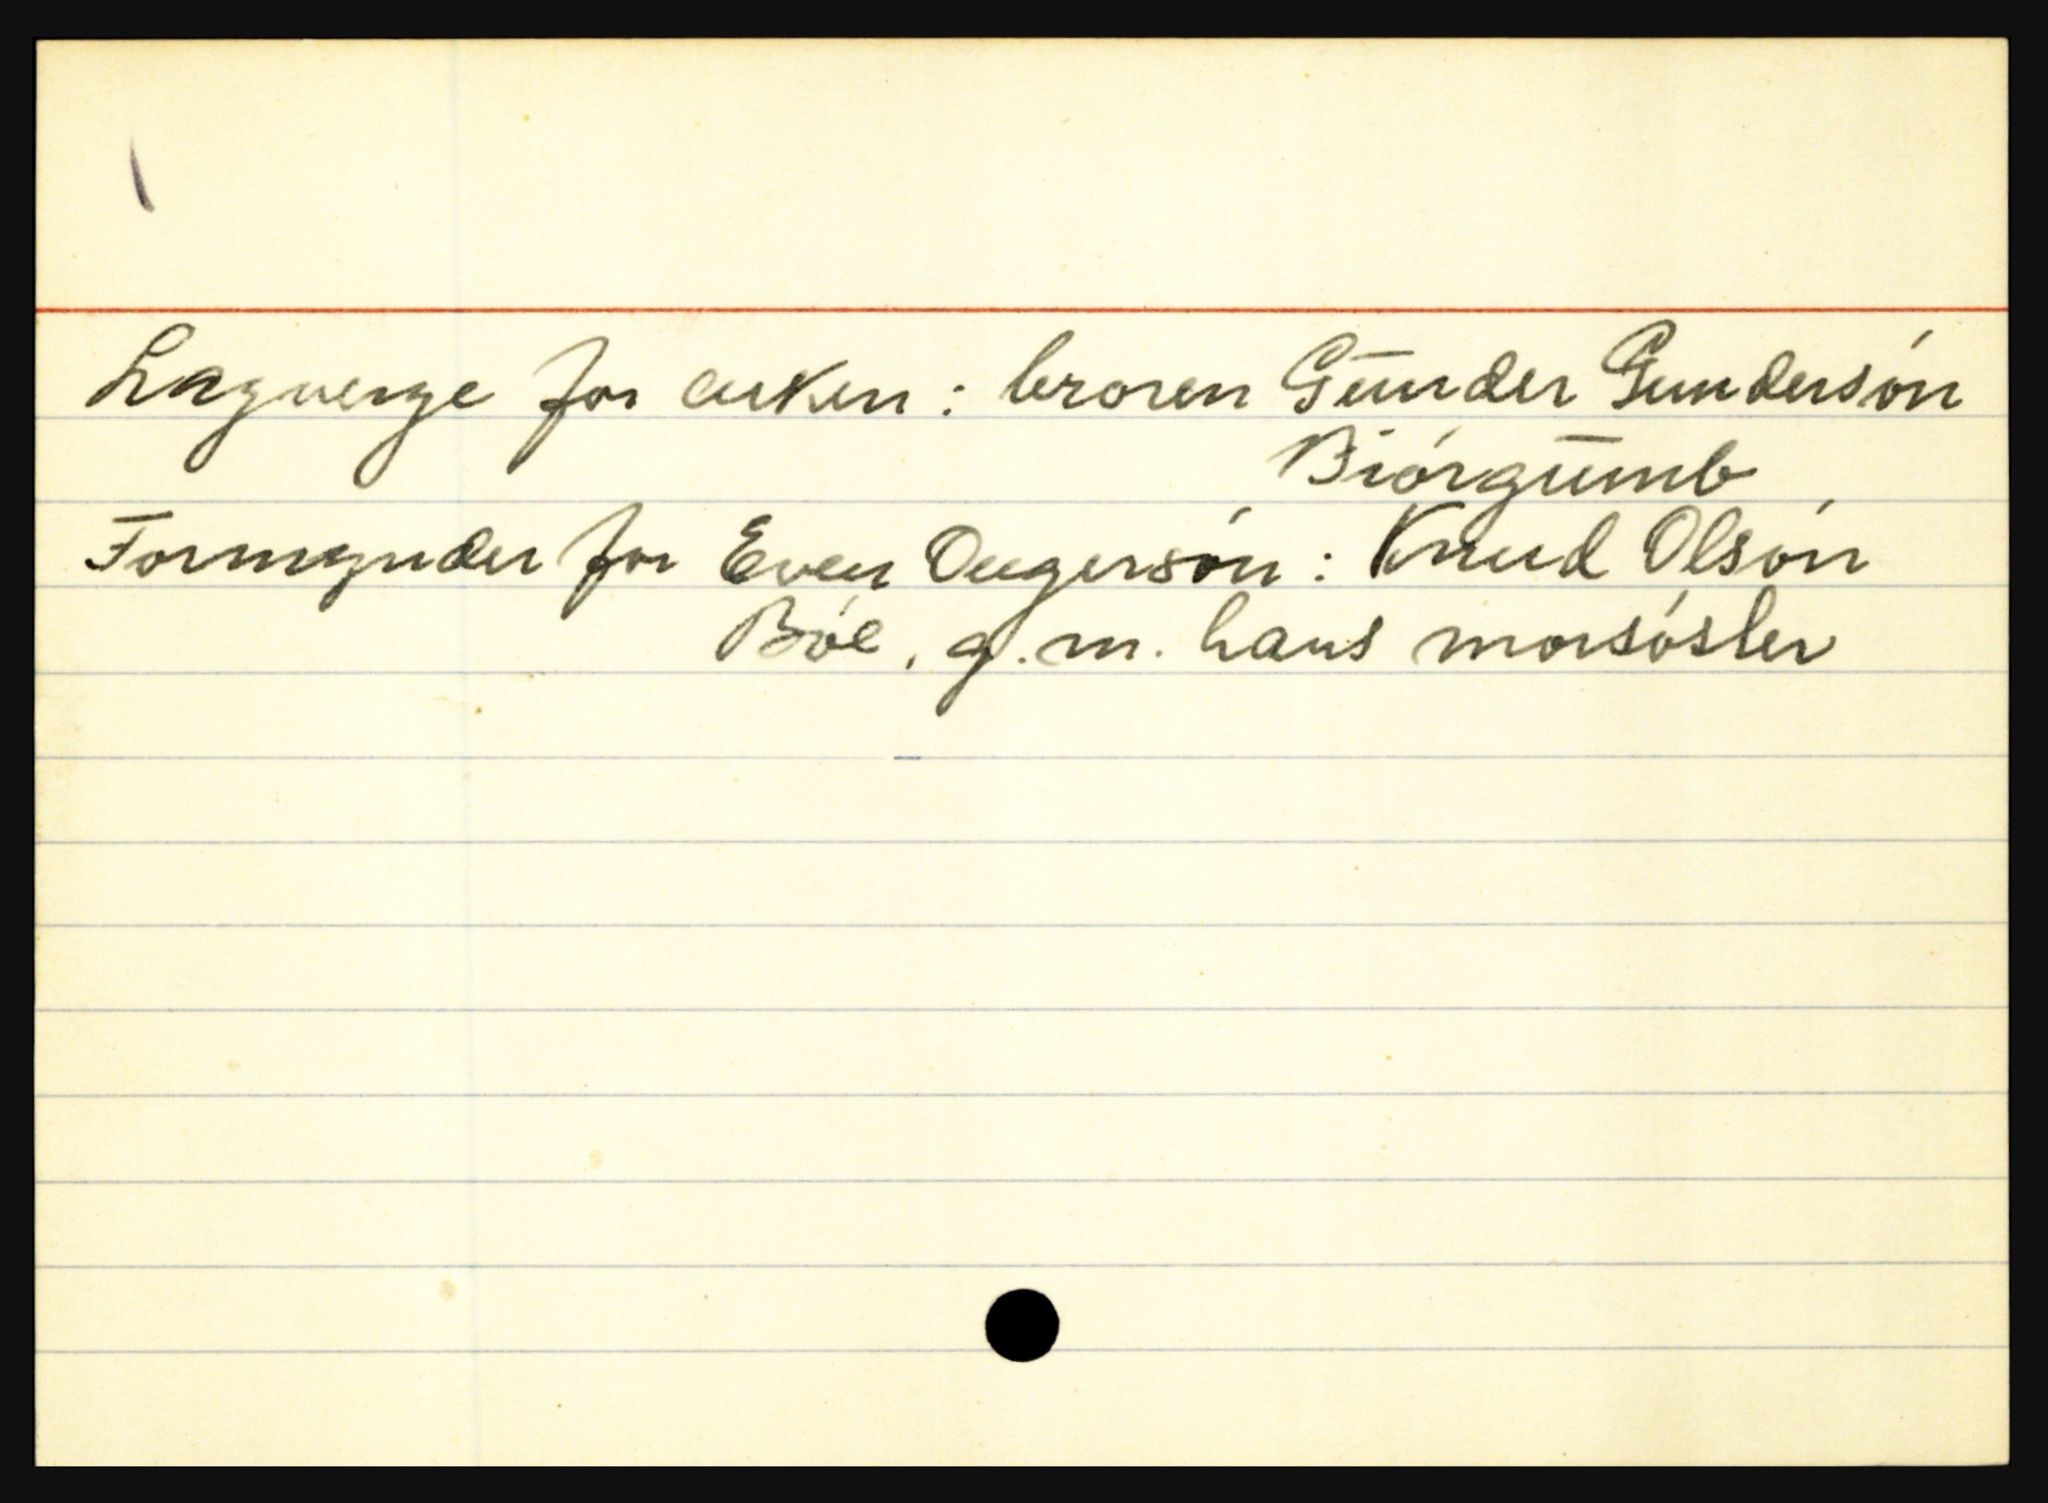 Lagverge for enken: broren Gūnder Gundersón
Biórgūmb
Formynder for Even Ougersón: Knud Olsón
Bóe, g.m. hans morsóster